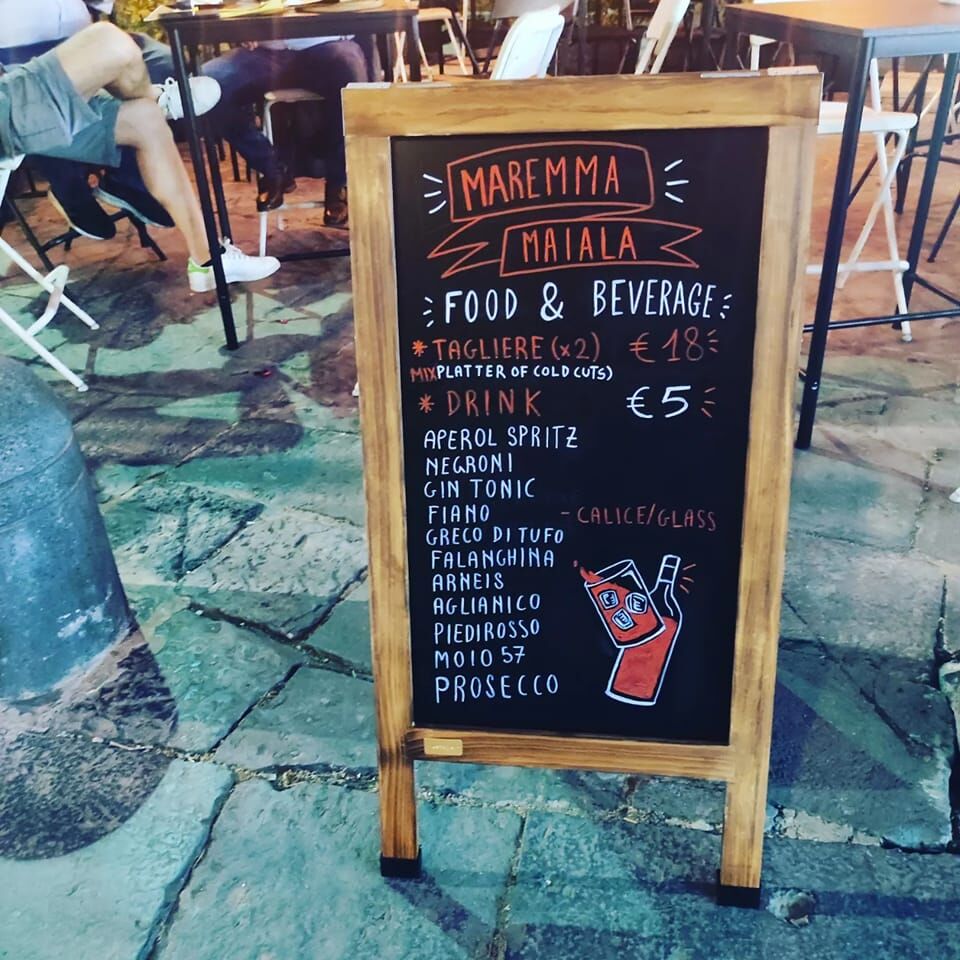 MAREMMA
MAIALA
FOOD & BEVERAGE
* TAGLIERE (x2) € 18
MIX PLATTER OF COLD CUTS)
* DRINK € 5
APEROL SPRITZ
NEGRONI
GIN TONIC
FIANO - CALICE/GLASS
GRECO DI TUFO
FALANGHINA
ARNEIS
AGLIANICO
PIEDIROSSO
MOIO 57
PROSECCO